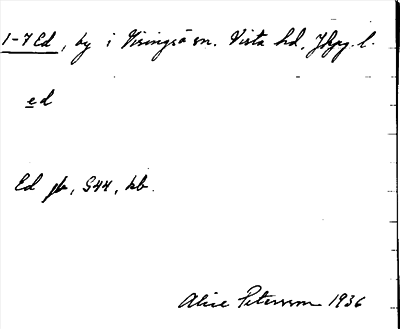 1-7 Ed, by i Visingsö sn. Vista hd, Jkpg. l.
ed
Ed gb, S44, kb.
Alice Petersson 1936